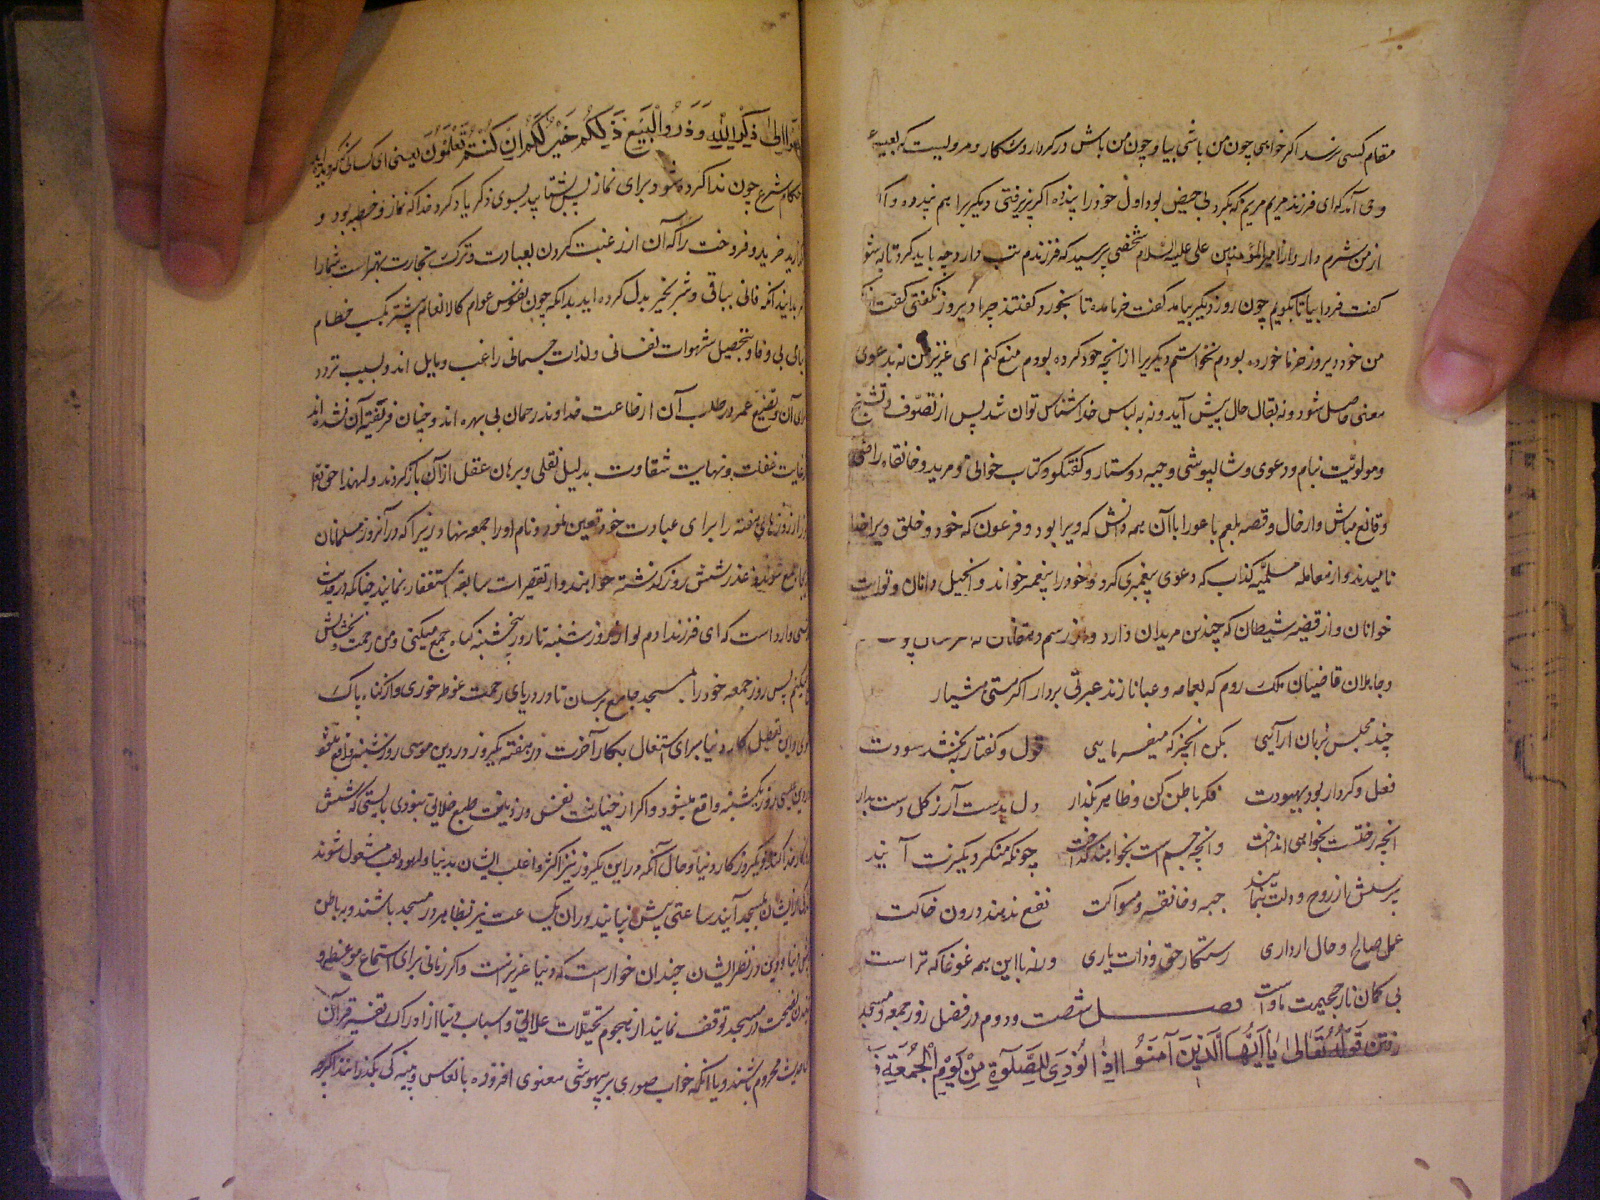 مقام کسی نرسد اگر خواهی چون من باشی بیا و چون من باش در کردار و
وحی آمد که ای فرزند مریم بی حیض بود اول خود را پند ده اگر پذیرفتی دیگریرا هم پند ده و
از من شرم دار و از امیر المؤمنین علی علیه السلام شخصی پرسید که فرزندم تب دارد چه باید کرد تا به شو
گفت فردا بیا تا بگویم چون روز دیگر بیامد گفت خرما مده تا بخورد گفتند چرا دیروز نگفتی گفت
من خود دیروز خرما خورده بودم نخواستم دیگریرا از آنچه خود کرده بودم منع کنم ای عزیز من نه بدعوی
معنی حاصل شود و نه بقال حال پیش آید و نه به لباس خدا شناس توان شد پس از تصوف و تشیخ
و مولویت بنام و دعوی و شالپوشی و جبه و دستار و گفتگو و کتاب خوانی و مرید و خانقاه راضی
و قانع مباش و از حال و قصه بلعم باعورا با آن همه دانش که ویرا بود و فرعون که خود و خلق ویرا خدا
نامیدند و از معامله مسلمه کذاب که دعوی پیغمبری کرد و خود را پیغمبر خواند و انجیل دانان و تورایت
خوانان و از قضیه شیطان که چندین مریدان دارد و از رسم
و جاهلان قاضیان ملک روم که بعمامه و عبا نازند عبرتی بردار اگر مستی هشیار
چند مجلس بزبان آرائیی بکن آنچز که میفرمایی قول و گفتار نه بخشد سودت
فعل و کردار بود بهبودت فکر باطن کن و ظاهر بگذار دل بدست آر ز گل دست بدار
آنچه رختست بخواهی انداخت و آنچه جسم است بخواهند گداخت چونکه منکر و نکیرت آیند
پرسش از روح و دلت بنمایند جبه و خانقه و مسواکت نفع ندهند درون خاکت
عمل صالح و حال ار داری رستگار حق و ذات یاری ورنه با این همه غوغا که تراست
بی گمان نار جحیمت ماواست فصل شصت و دوم در فضل روز جمعه و مسجد
رفتن قوله تعالی یا ایها الذین آمنوا اذا نودی للصلوة من یوم الجمعة
الی ذکر الله وذروا البیع ذلکم خیر لکم ان کنتم تعلمون یعنی ای کسانی که
شرع چون ندا کرده شود برای نماز پس بشتابید بسوی ذکر و یاد کرد خدا که نماز و خطبه بود و
خرید و فروخت را که آن از رغبت کردن بعبادت و ترک تجارت بهتر است شما را
فانی بباقی و شر بخیر بدل کرده اید بدانکه چون نفوس عوام کالانعام بیشتر بکسب حطام
بی وفا و بتحصیل شهوات نفسانی و لذات جسمانی راغب و مایل اند و بسبب تردد
آن و تضییع عمر در طلب آن از طاعت خداوند رحمان بی بهره اند و چنان فریفته آن شده اند
غایت غفلت و نهایت شقاوت بدلیل نقلی و برهان عقل از آن باز گردند و لهذا حق تع
از روزهای هفته را برای عبادت خود تعین نمود و نام او را جمعه نهاد زیرا که در آنروز مسلمانان
جمع شوند و عذر شش روز گذشته خواهند و از تقصیرات سابقه استغفار نمایند چنانکه در حدیث
وارد است که ای فرزند آدم تو از روز شنبه تا روز پنجشنبه گناه جمع میکنی و من رحمت و بخشایش
پس روز جمعه خود را بمسجد جامع برسان تا در دریای رحمت غوطه خوری و از گناه پاک
و این تعطیل کار دنیا برای اشتغال بکار آخرت در هفته یکروز در دین موسی روز شنبه واقع
عیسی روز یکشنبه واقع میشود و اگر از خیانت نفس و رذیلت طبع خلائق نبودی بایستی که شش
و یکروز کار دنیا و حال آنکه در این یکروز نیز اکثر و اغلب ایشان بدنیا و لهو و لعب مشغول شوند
ایشان بمسجد آیند ساعتی پیش نپایند و در آن یک ساعت نیز بظاهر در مسجد باشند و به باطن
دنیا و دین در نظر ایشان چندان خوار است که دنیا عزیز است و اگر زمانی برای استماع موعظه و
نصیحت در مسجد توقف نمایند از هجوم تخیلات علائق و اسباب دنیا از ادراک تفسیر قرآن
محروم باشند و یا آنکه خواب صوری بر بیهوشی معنوی افزوده با نعاس و پینه کی بگذرانند